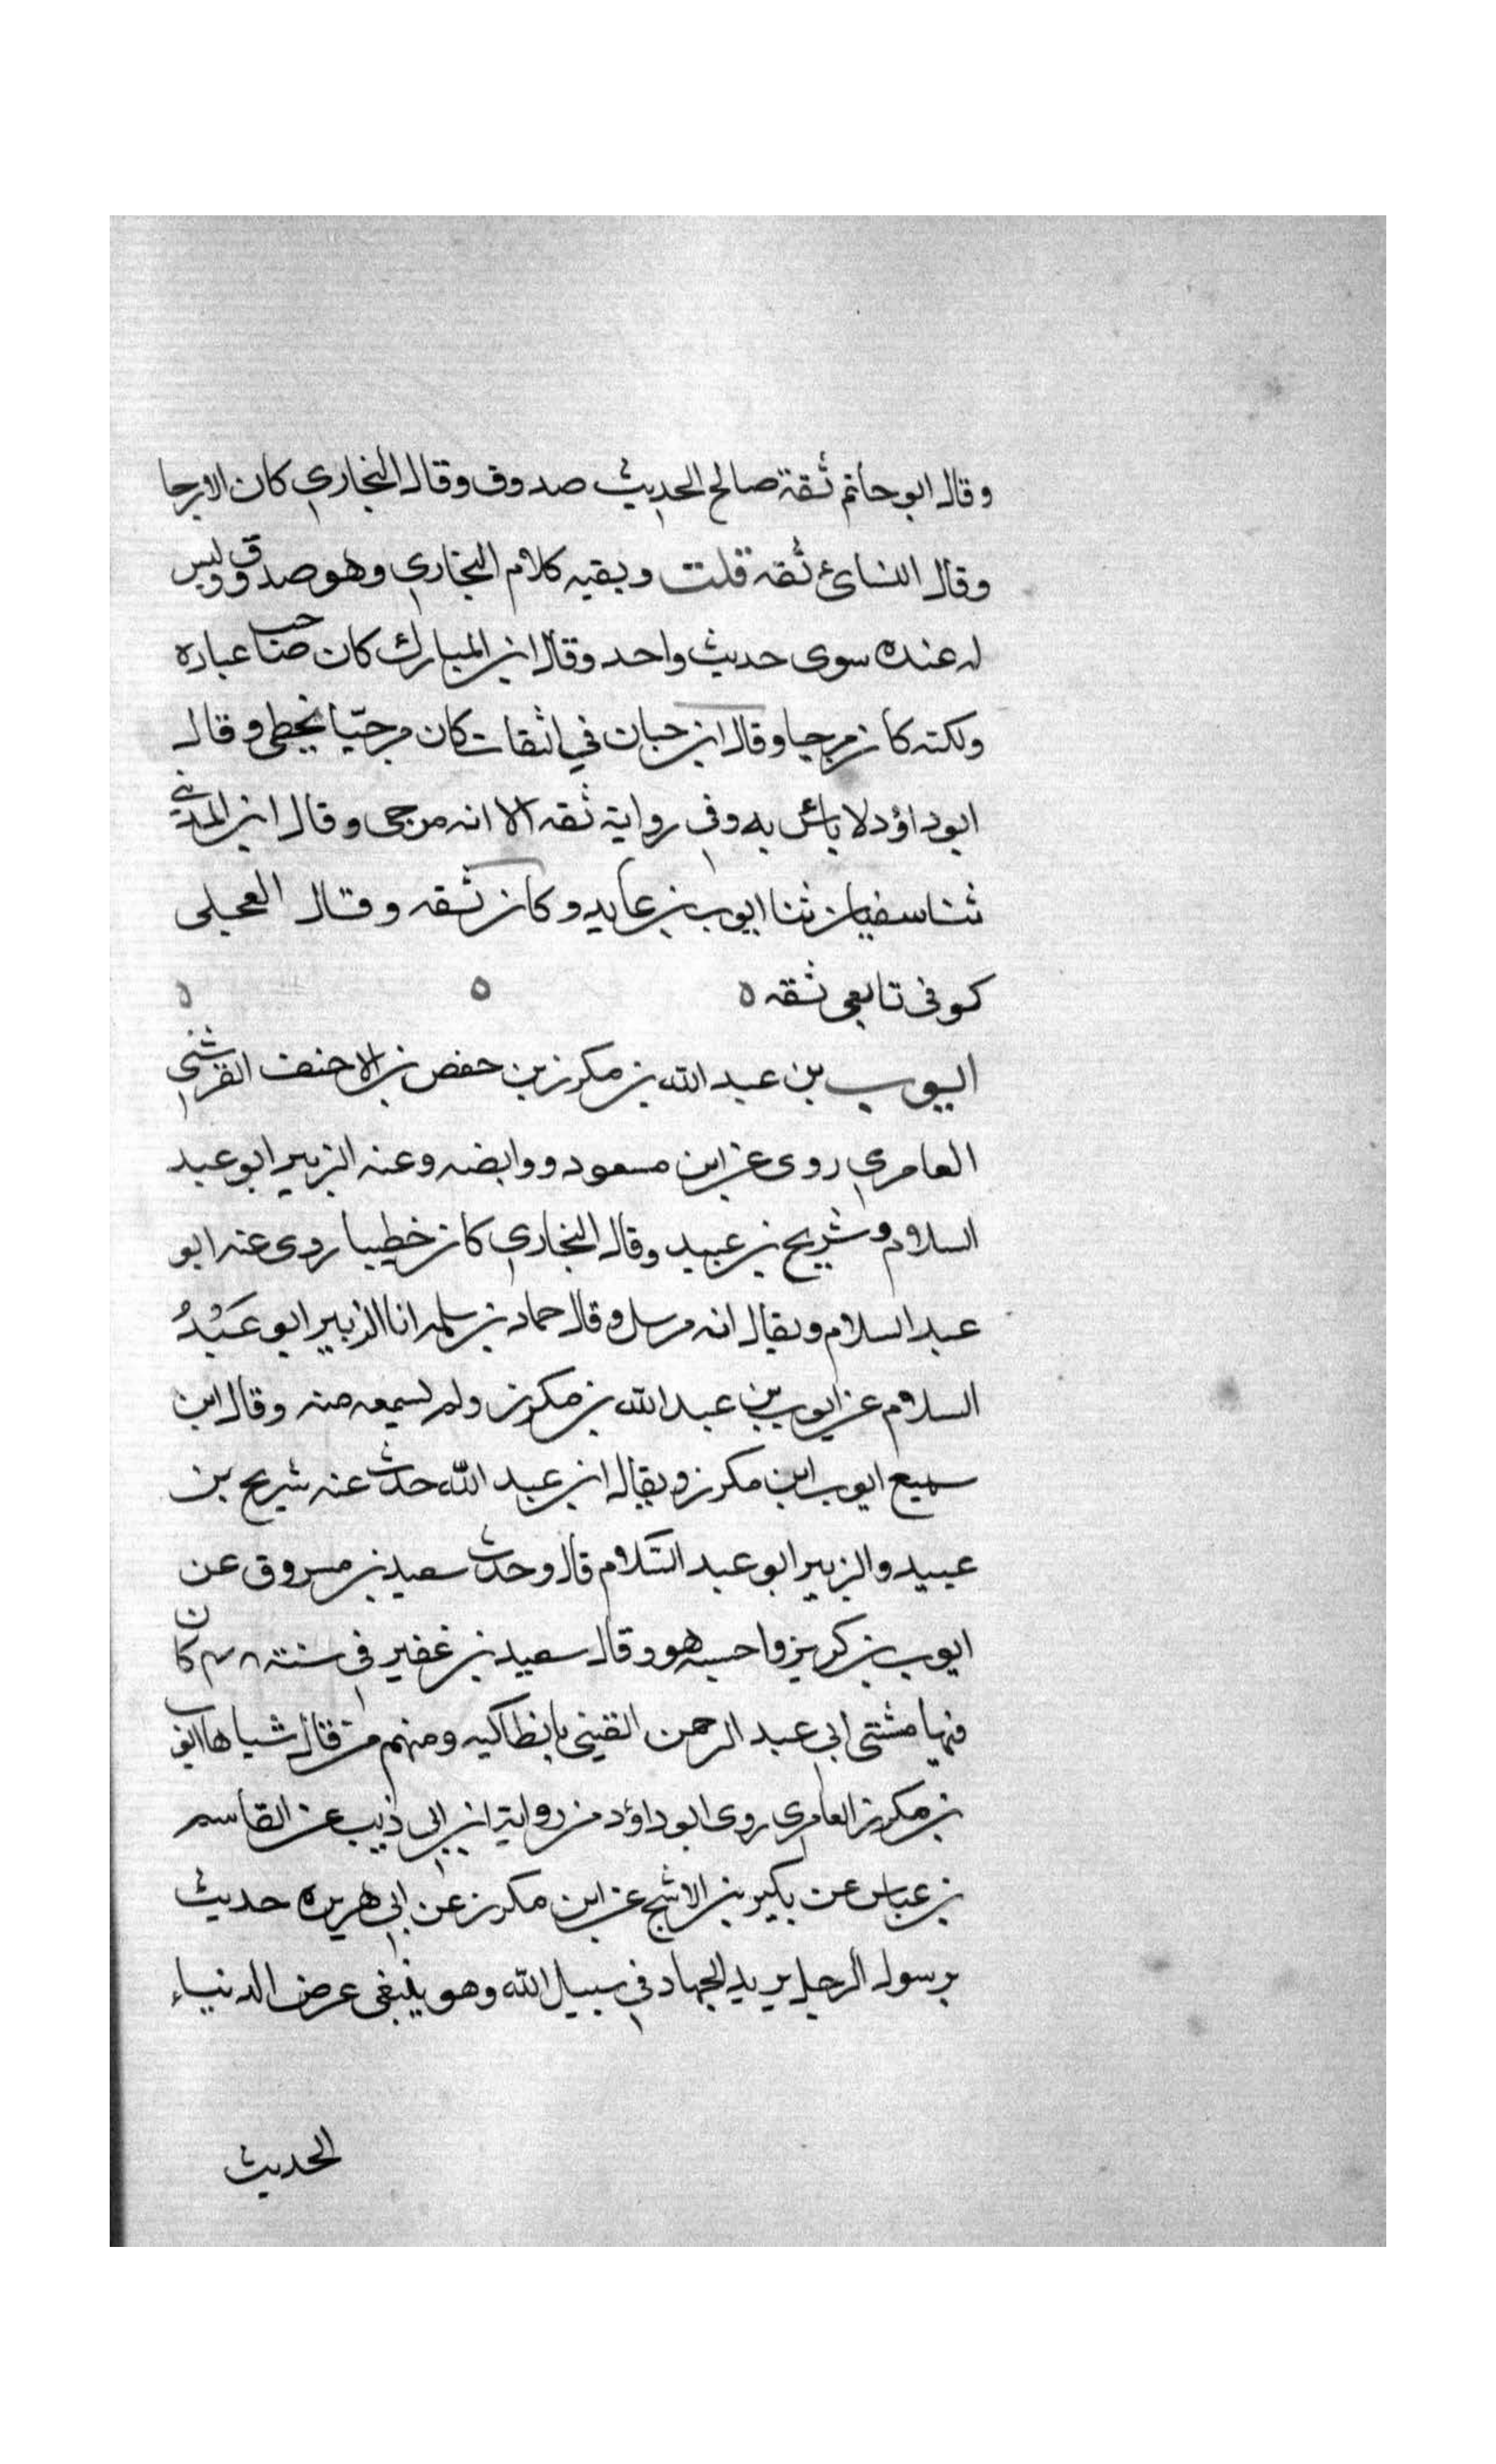 وقال ابو حاتم ثقة صالح الحديث صدوق وقال البخاري كان الارجا
وقال النسائ ثقه قلت وبقيه كلام البخاري وهو صدوق وليس
له عنده سوى حديث واحد وقال ابن المبارك كان صاحب عباره
ولكنه كان مرجيا وقال ابن حبان في الثقات كان مرجئا يخطى وقال
ابو داؤد لا باس به وفي رواية ثقه الا انه مرجى وقال ابن المديني
ثنا سفيان ثنا ايوب بن عايد وكان ثقه وقال العجلى
كوفى تابعى ثقه ه ه ه
ايوب بن عبد الله بن مكرز بن حفص بن الاحنف القرشي
العامري روى عن ابن مسعود ووابضه وعنه الزبير ابو عبد
السلام وشريح بن عبيد وقال البخاري كان خطيبا روى عنه ابو
عبد السلام ويقال انه مرسل وقال حماد بن سلمه انا الزبير ابو عَبْدُ
السلام عن ايوب بن عبد الله بن مكرز ولم يسمعه منه وقال ابن
سميع ايوب ابن مكرز ويقال ابن عبد الله حدث عنه شريح بن
عبيد والزبير ابو عبد السّلام قال وحدث سعيد بن مسروق عن
ايوب بن كريز واحسبه هو وقال سعيد بن غفير فى سنة ٤٨ كان
فيها مشتى ابي عبد الرحمن القينى بانطاكيه ومنهم من قال شباها ايوب
بن مكرز العامرى روى ابو داؤد من رواية ابن ابى ذيب عن القاسم
بن عباس عن بكير بن الاشج عن ابن مكرز عن ابي هريره حديث
يرسول الرجل يريد الجهاد في سبيل الله وهو يبتغى عرض الدنياء
الحديث